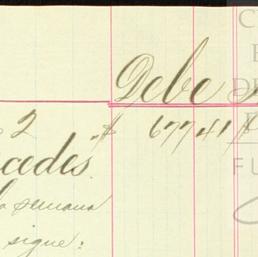 Debe
2 $ 67741 $
cedes.
semana
sigue: